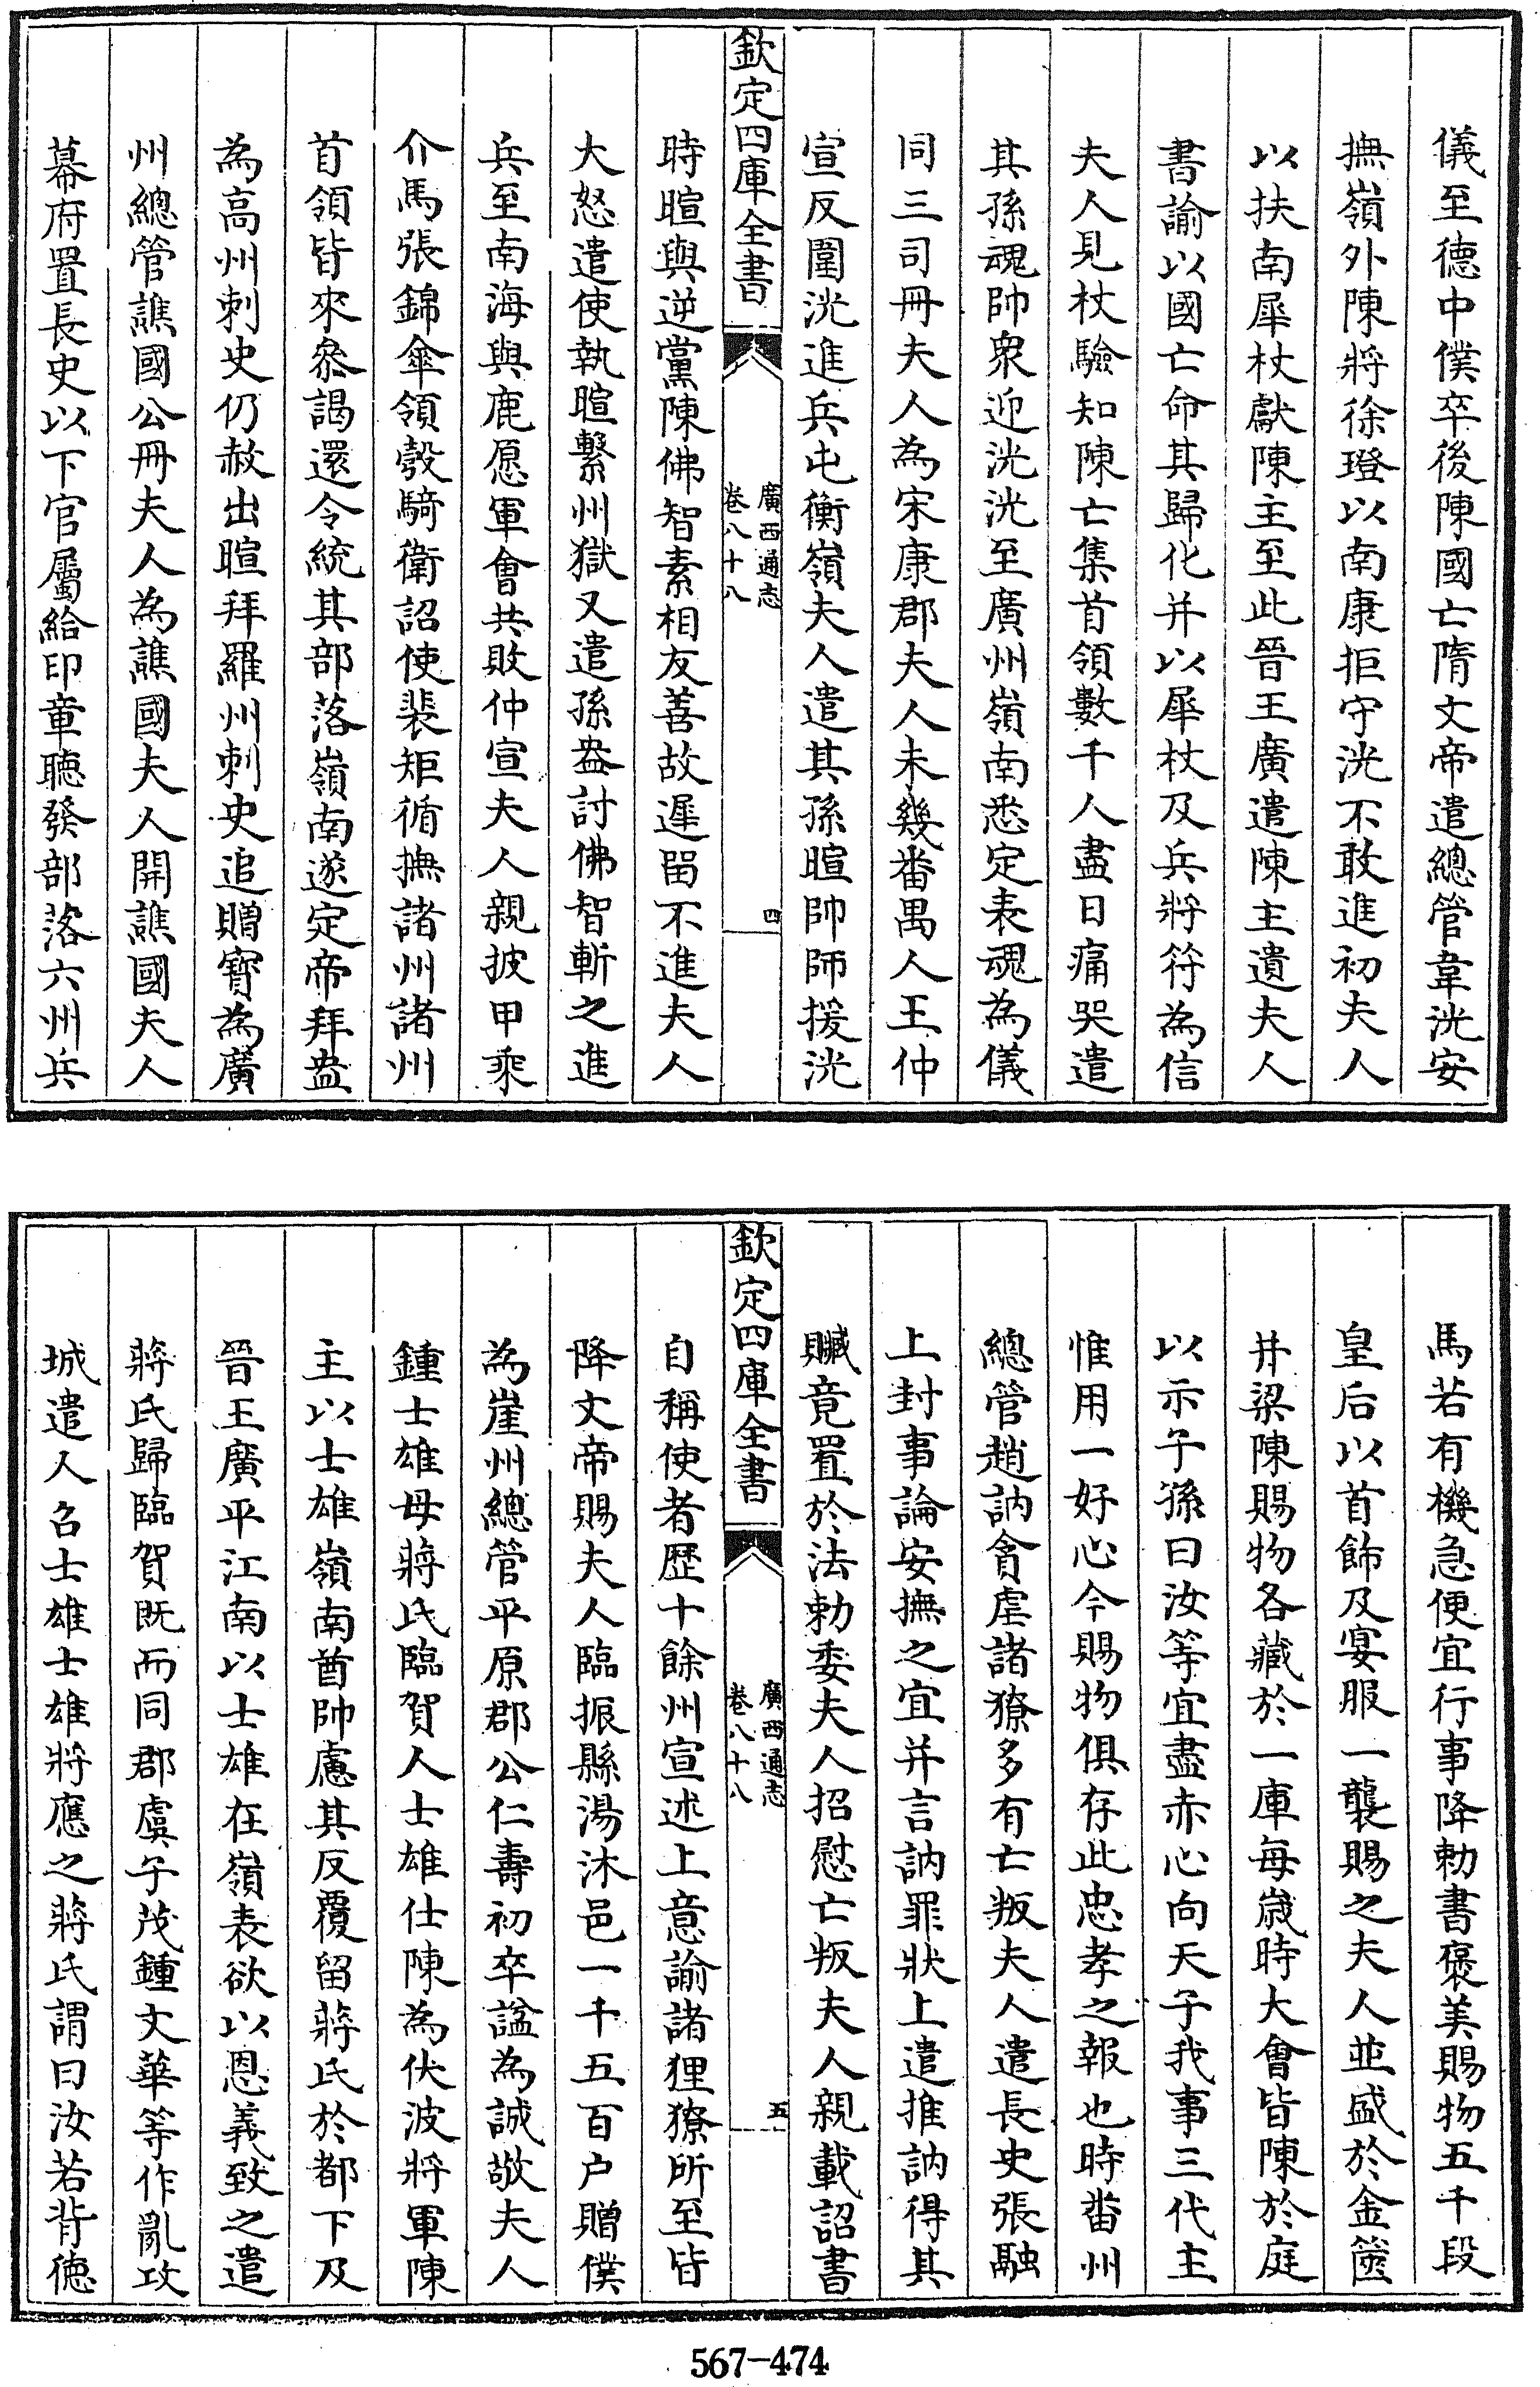 儀至德中僕卒後陳國亡隋文帝遣總管韋洸安
撫嶺外陳將徐璒以南康拒守洸不敢進初夫人
以扶南犀杖獻陳主至此晉王廣遣陳主遺夫人
書諭以國亡命其歸化并以犀杖及兵將符為信
夫人見杖驗知陳亡集首領數千人盡日痛哭遣
其孫魂帥衆迎洸洸至廣州嶺南悉定表魂為儀
同三司冊夫人為宋康郡夫人未幾番禺人王仲
宣反圍洸進兵屯衡嶺夫人遣其孫暄帥師援洸
欽定四庫全書
廣西通志
卷八十八
四
時暄與逆黨陳佛智素相友善故遲畱不進夫人
大怒遣使執暄繫州獄又遣孫盎討佛智斬之進
兵至南海與鹿愿軍會共敗仲宣夫人親披甲乘
介馬張錦傘領彀騎衛詔使裴矩循撫諸州諸州
首領皆來叅謁還令統其部落嶺南遂定帝拜盎
為高州刺史仍赦出暄拜羅州刺史追贈寶為廣
州總管譙國公冊夫人為譙國夫人開譙國夫人
幕府置長史以下官屬給印章聽發部落六州兵
馬若有機急便宜行事降勅書褒美賜物五千段
皇后以首飾及宴服一襲賜之夫人並盛於金篋
井梁陳賜物各藏於一庫每歲時大會皆陳於庭
以示子孫曰汝等宜盡赤心向天子我事三代主
惟用一好心今賜物俱存此忠孝之報也時畨州
總管趙訥貪虐諸獠多有亡叛夫人遣長史張融
上封事論安撫之宜并言訥罪狀上遣推訥得其
贓竟置於法勅委夫人招慰亡叛夫人親載詔書
欽定四庫全書
廣西通志
卷八十八
五
自稱使者歷十餘州宣述上意諭諸狸獠所至皆
降文帝賜夫人臨振縣湯沐邑一千五百户贈僕
為崖州總管平原郡公仁壽初卒諡為誠敬夫人
鍾士雄母蔣氏臨賀人士雄仕陳為伏波將軍陳
主以士雄嶺南酋帥慮其反覆留蔣氏於都下及
晉王廣平江南以士雄在嶺表欲以恩義致之遣
蔣氏歸臨賀既而同郡虞子茂鍾文華等作亂攻
城遣人召士雄士雄將應之蔣氏謂曰汝若背德
567-474